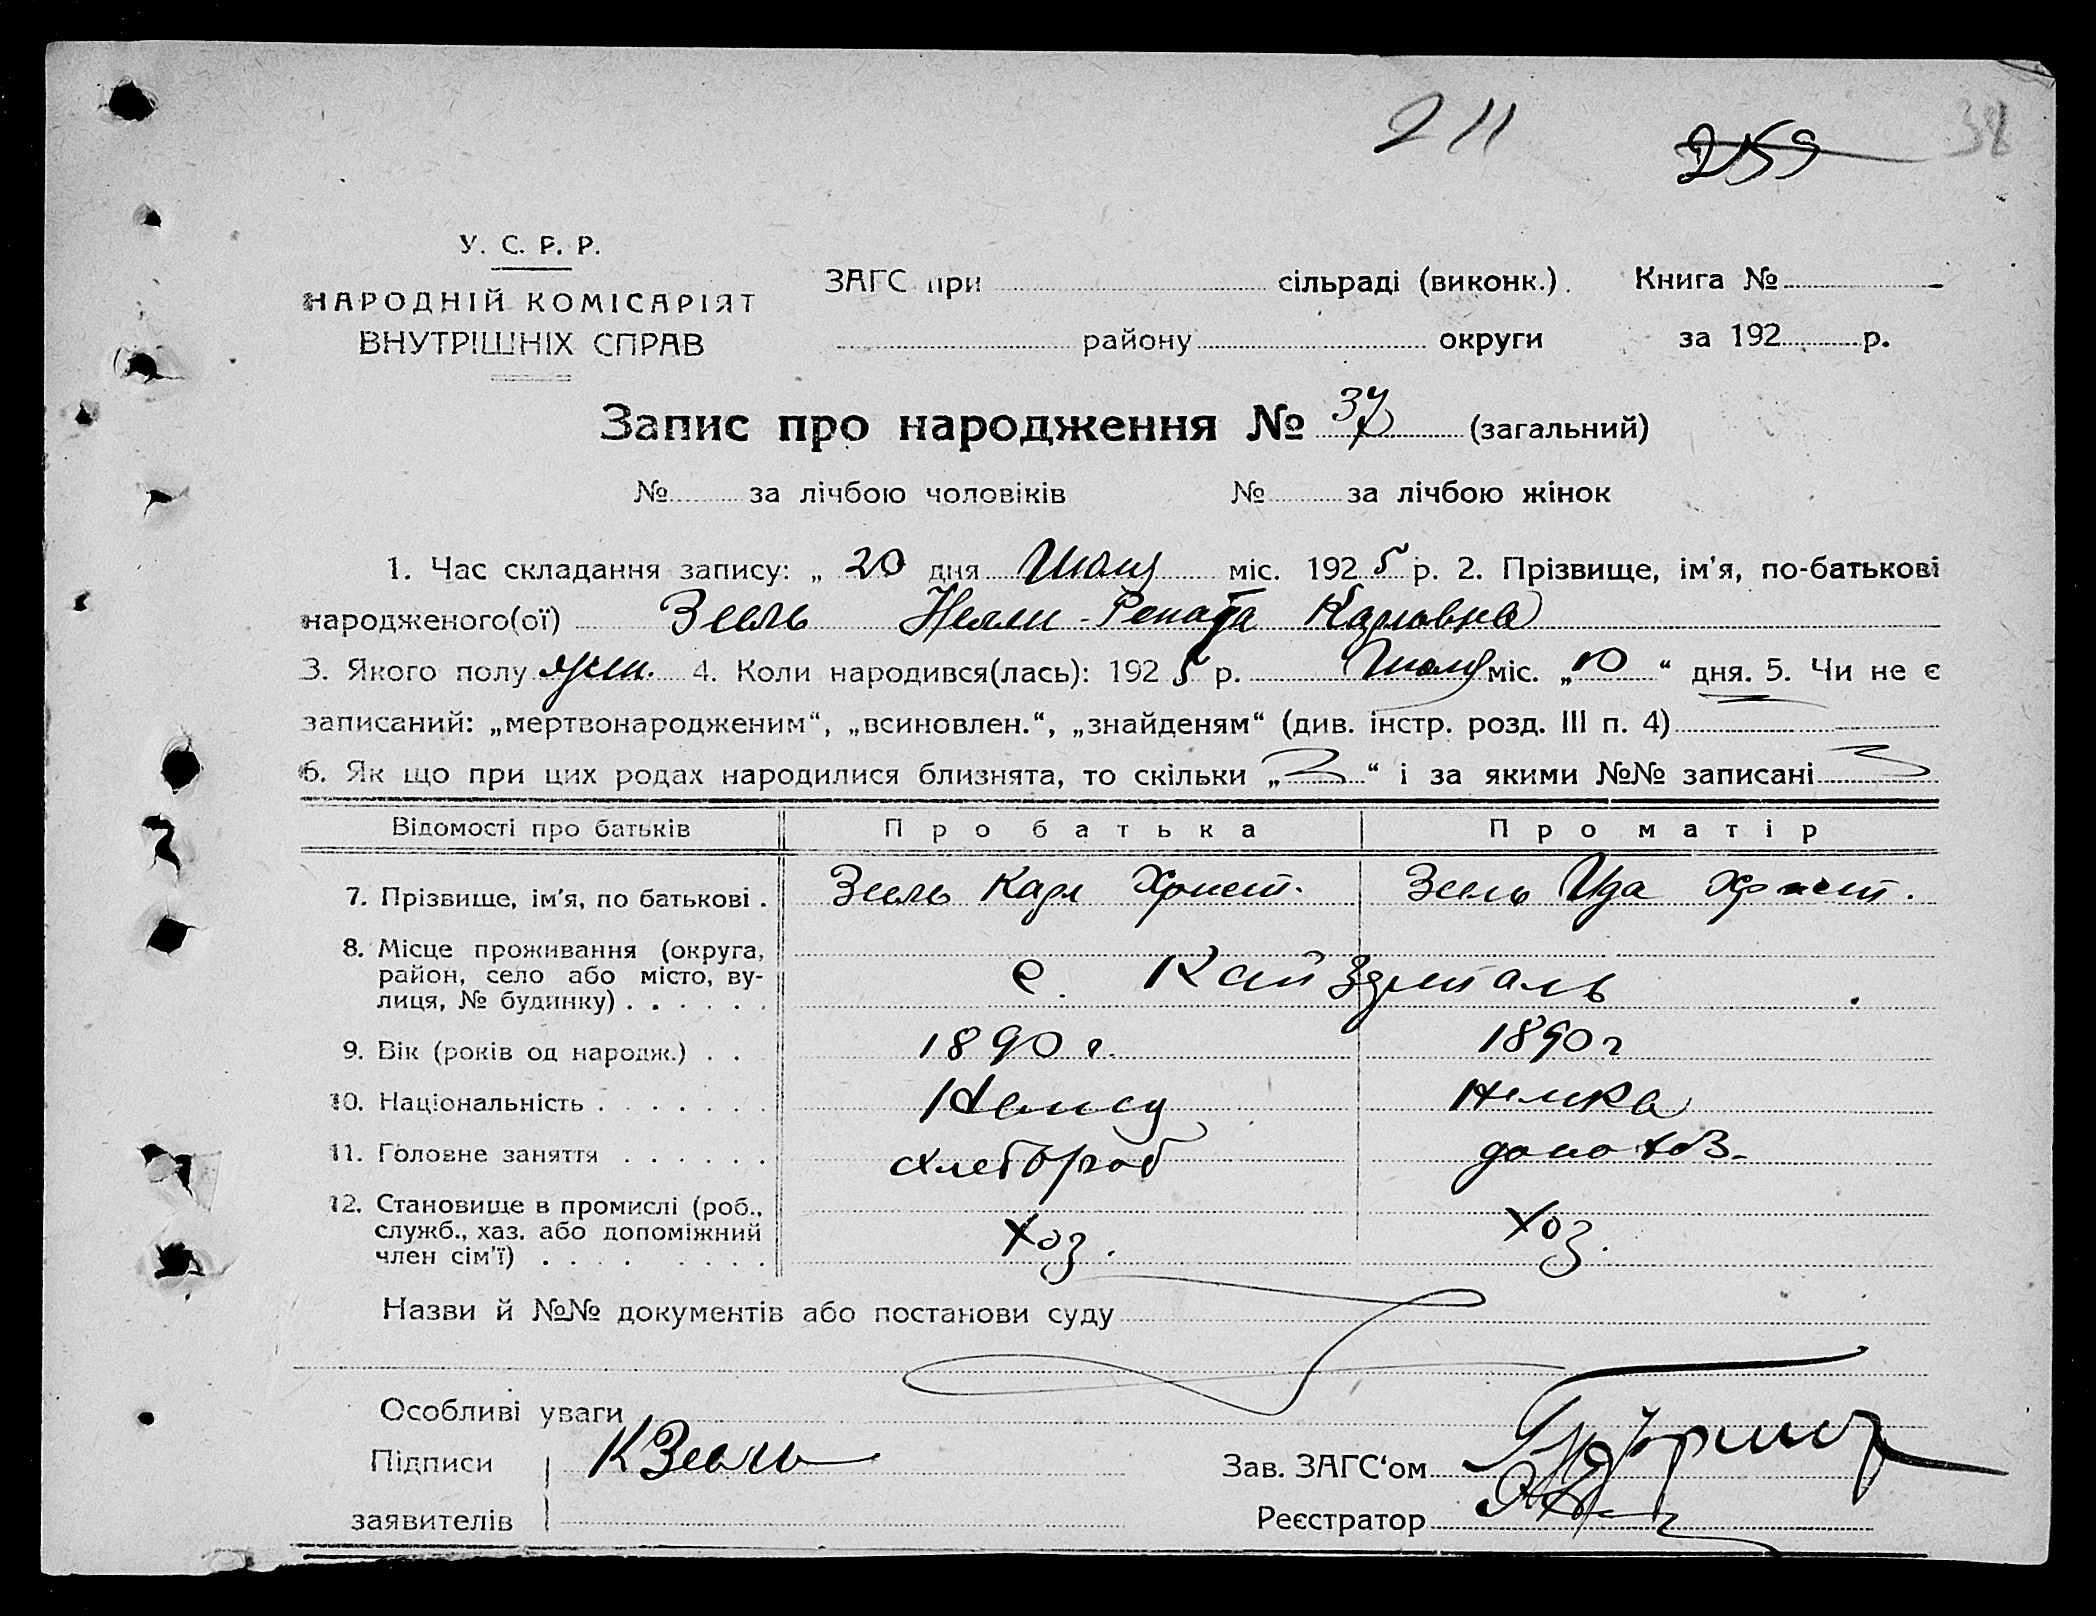 211
259
38
У. С. Р. Р.
НАРОДНІЙ КОМІСАРІЯТ
ВНУТРІШНІХ СПРАВ
ЗАГС при сільраді (виконк.). Книга №
району округи за 192 р.
Запис про народження № 37 (загальний)
№ за лічбою чоловіків № за лічбою жінок
1. Час складання запису: „ 20 дня міс. 1925 р. 2. Прізвище, ім'я, по-батькові
народженого(ої) Зеель Нелли-Рената Карловна
3. Якого полу жен. 4. Коли народився(лась): 1925 р. міс. „10“ дня. 5. Чи не є
записаний: „мертвонародженим“, „всиновлен.“, „знайденям“ (див. інстр. розд. III п. 4)
6. Як що при цих родах народилися близнята, то скільки „ “ і за якими №№ записані
Відомості про батьків Про батька Про матір
7. Прізвище, ім'я, по батькові . Зеель Карл Христ. Зеель Ида Христ.
8. Місце проживання (округа,
район, село або місто, ву-
лиця, № будинку) . . . . . . с. Кайзерталь
9. Вік (років од народж.) . . 1890 г. 1890 г
10. Національність . . . . . . . Немец Немка
11. Головне заняття . . . . . . хлебороб домохоз.
12. Становище в промислі (роб.,
служб., хаз. або допоміжний
член сім'ї) . . . . . . . . хоз. хоз.
Назви й №№ документів або постанови суду
Особливі уваги
Підписи К Зеель Зав. ЗАГС'ом
заявителів Реєстратор